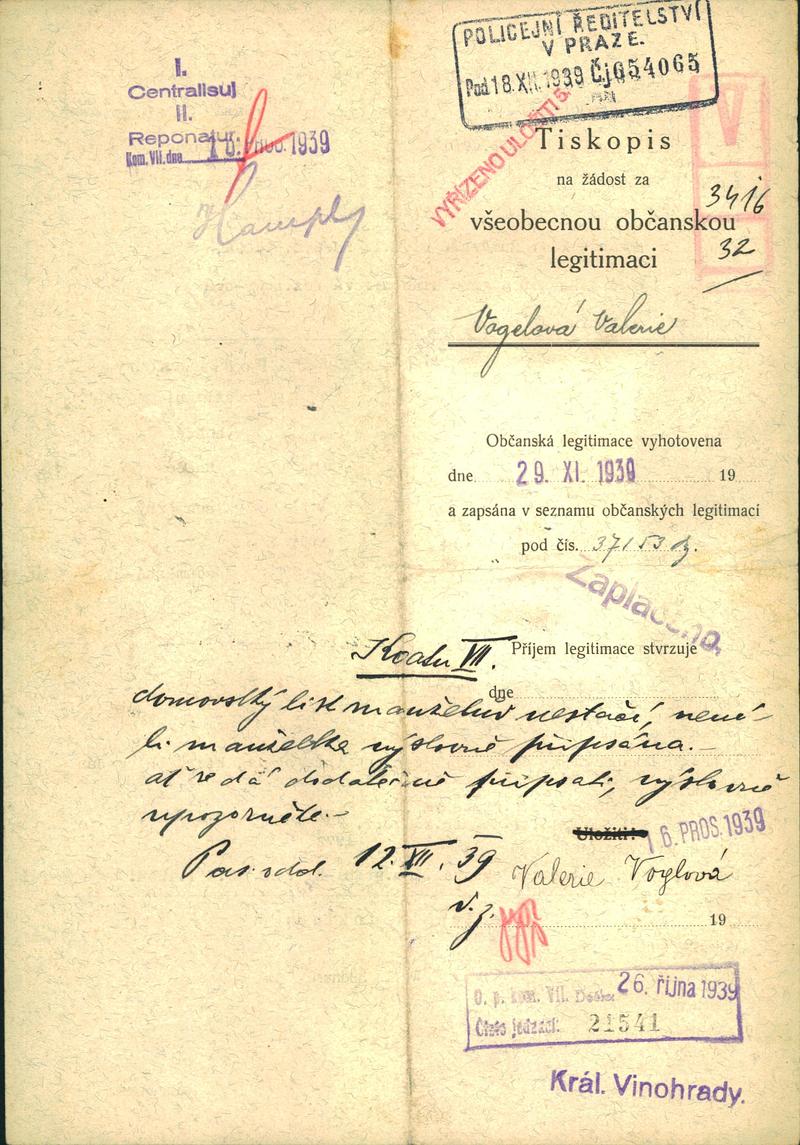 I.
Centralisuj
II.
Reponatur.
Kom. VII. dne 16. PROS. 1939
POLICEJNÍ ŘEDITELSTVÍ
V PRAZE.
Pod 18 XII. 1939 Čj 654065
VYŘÍZENO ULOŽITI
V
Tiskopis
na žádost za
všeobecnou občanskou
legitimaci
3416
32
Vogelová Valerie
Občanská legitimace vyhotovena
dne 29. XI. 1939 19
a zapsána v seznamu občanských legitimací
pod čís. 37153
Zaplaceno.
Příjem legitimace stvrzuje
dne
Koatu VII.
domovský list manželův nestačí, není-
li manželka výslovně připsána.-
ať se dá dodatečně připsati, výslovně
upozorněte.-
Uložiti! 16. PROS. 1939
Pas. odd. 12. XII. 39
Valerie Voglová
v. z.
19
O. p. kom. VII. Došlo: 26. října 1939
Číslo jednací: 21541
Král. Vinohrady.